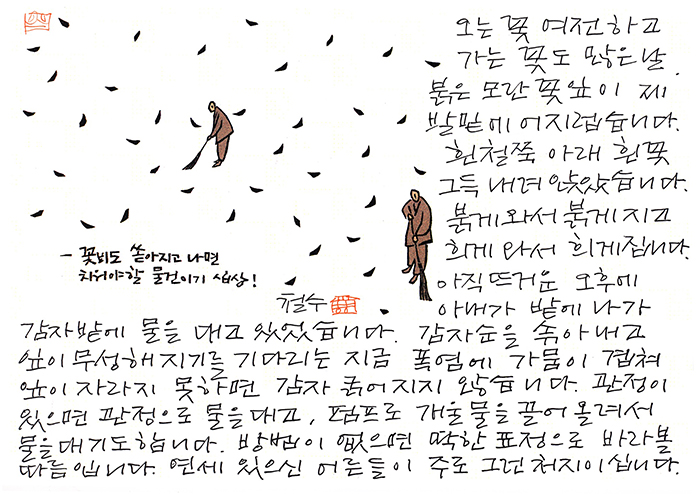 오는 꽃 여전하고
가는 꽃도 많은 날.
붉은 모란 꽃잎이 제
발밑에 어지럽습니다.
흰철쭉 아래 흰꽃
그득 내려 앉았습니다.
붉게 와서 붉게 지고
희게 와서 희게 집니다.
아직 뜨거운 오후에
아내가 밭에 나가
감자밭에 물을 대고 있었습니다. 감자순을 솎아내고
잎이 무성해지기를 기다리는 지금 폭염에 가뭄이 겹쳐
잎이 자라지 못하면 감자 굵어지지 않습니다. 관정이
있으면 관정으로 물을 대고, 펌프로 개울물을 끌어 올려서
물을 대기도 합니다. 방법이 없으면 딱한 표정으로 바라볼
따름입니다. 연세 있으신 어른들이 주로 그런 처지이십니다.
- 꽃비도 쏟아지고 나면
치워야할 물건이기 십상!
철수